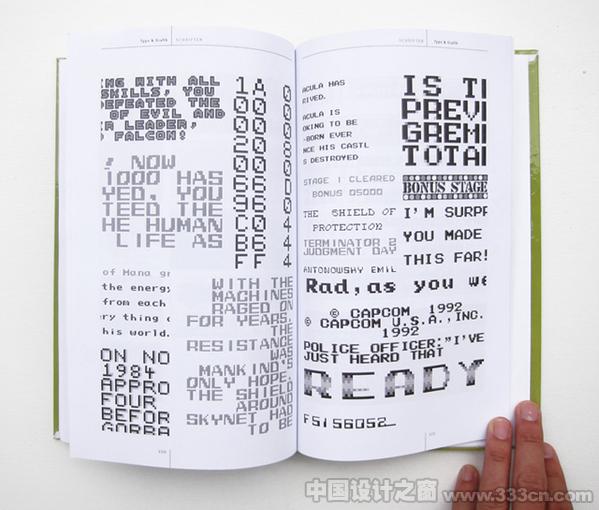 Type & Grafik SCHRIFTEN
NG WITH ALL
SKILLS, YOU
DEFEATED THE
OF EVIL AND
R LEADER,
FALCON!
NOW
1000 HAS
YED, YOU
TEED THE
HE HUMAN
LIFE AS
of Mana
the energy
from each
ry thing
his world.
ON NO
1984
APPRO
FOUR
BEFOR
GORBA
1A 0
00 0
00 0
20 8
00 0
66 D
96 0
C0 4
B6 4
FF 4
WITH THE
MACHINES
RAGED ON
FOR YEARS,
THE
RESISTANCE
WAS
MANKIND'S
ONLY HOPE.
THE SHIELD
AROUND
SKYNET HAD
TO BE
SCHRIFTEN Type & Grafik
ACULA HAS
RIVED.
ACULA IS
OKING TO BE
-BORN EVER
NCE HIS CASTL
S DESTROYED
STAGE 1 CLEARED
BONUS 05000
THE SHIELD OF
PROTECTION
TERMINATOR 2
JUDGMENT DAY
ANTONOWSKY EMIL
IS TI
PREVI
GREMI
TOTAL
BONUS STAGE
I'M SURPR
YOU MADE
THIS FAR!
Rad, as you we
© CAPCOM 1992
© CAPCOM U.S.A., INC.
1992
POLICE OFFICER:"I'VE
JUST HEARD THAT
READY
FSIS6052_
中国设计之窗 www.333cn.com